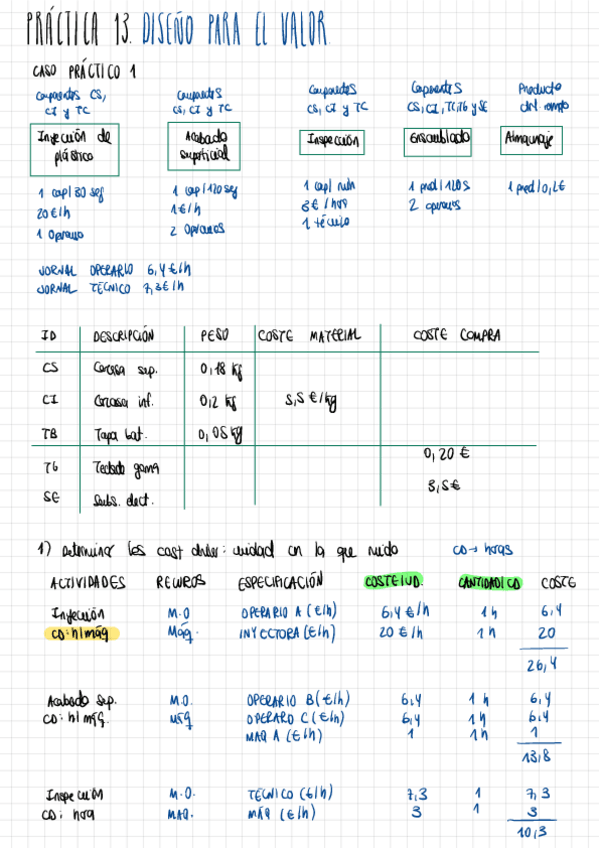 PRÁCTICA 13. DISEÑO PARA EL VALOR.
CASO PRÁCTICO 1
Componentes CS, CI y TC
Componentes CS, CI y TC
Componentes CS, CI y TC
Componentes CS, CI, TC, TG y SE
Producto
Inyección de plástico
Acabado superficial
Inspección
Ensamblado
Almacenaje
1 cap/30 seg
1 cap/120 seg
1 cap/ min
1 prod/120S
1 prod/0,2€
20€/h
1€/h
3€/hora
2 operarios
1 Operario
2 Operarios
1 técnico
JORNAL OPERARIO 6,4€/h
JORNAL TÉCNICO 7,3€/h
ID DESCRIPCIÓN PESO COSTE MATERIAL COSTE COMPRA
CS Carcasa sup. 0,18 kg
CI Carcasa inf. 0,2 kg 5,5€/kg
TB Tapa bat. 0,05kg
TG Teclado goma 0,20€
SE Subs. elect. 3,5€
1) Determinar los cost driver: unidad en la que mido CD→ horas
ACTIVIDADES RECURSOS ESPECIFICACIÓN COSTE/UD. CANTIDAD/CD COSTE
Inyección M.O OPERARIO A (€/h) 6,4€/h 1h 6,4
CD: h/máq Máq. INYECTORA (€/h) 20€/h 1h 20
26,4
Acabado Sup. M.O. OPERARIO B (€/h) 6,4 1h 6,4
CD: h/máq. Máq OPERARIO C (€/h) 6,4 1h 6,4
MAQ A (€/h) 1 1h 1
13,8
Inspección M.O. TÉCNICO (€/h) 7,3 1 7,3
CD: hora MAQ. MÁQ (€/h) 3 1 3
10,3